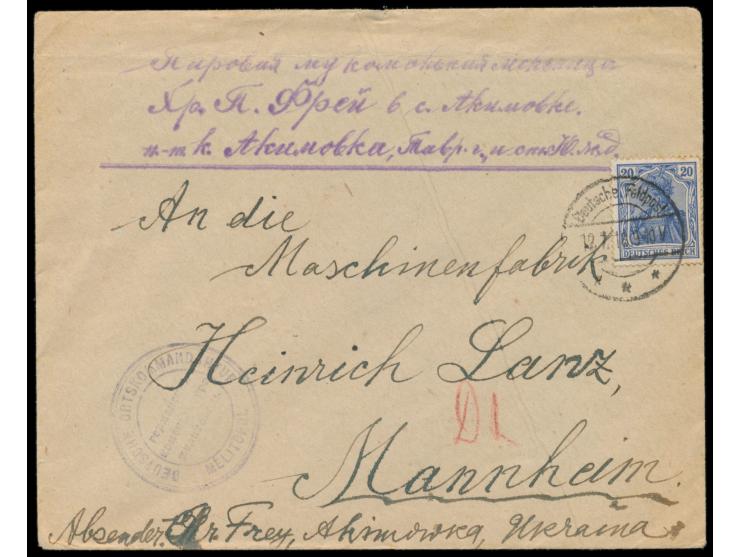 Паровая мукомольная мельница
Хр. П. Фрей в с. Акимовке.
п-т к. Акимовка, Тавр. г. и ст. Ю. ж. д.
20 20
DEUTSCHES REICH
Deutsche Feldpost
An die
Maschinenfabrik
Heinrich Lanz,
Mannheim.
DEUTSCHE ORTSKOMMANDANTUR
MELITOPOL
Absender: Chr. Frey, Akimowka, Ukraina